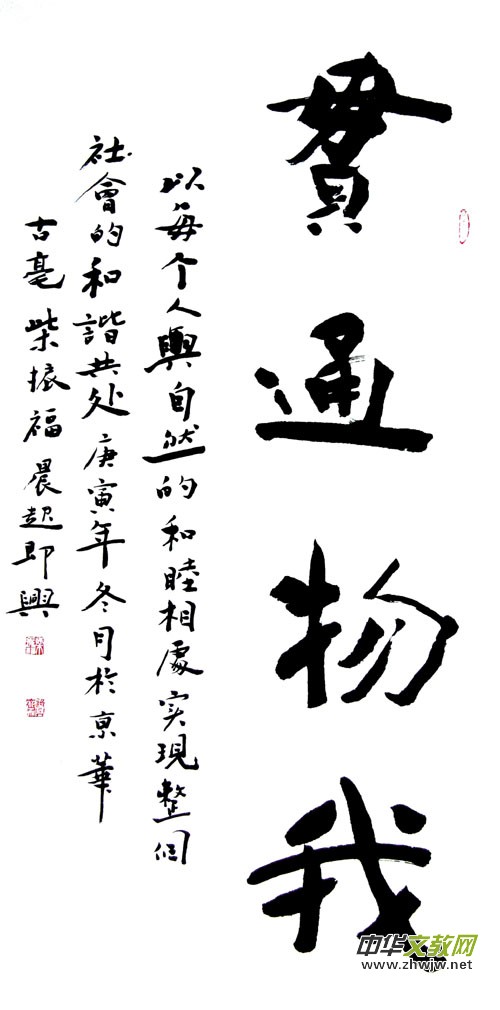 貫通物我
以每个人與自然的和睦相處实現整個
社會的和諧共处庚寅年冬月於京華
古亳柴振福晨起即興
中华文教网
www.zhwjw.net